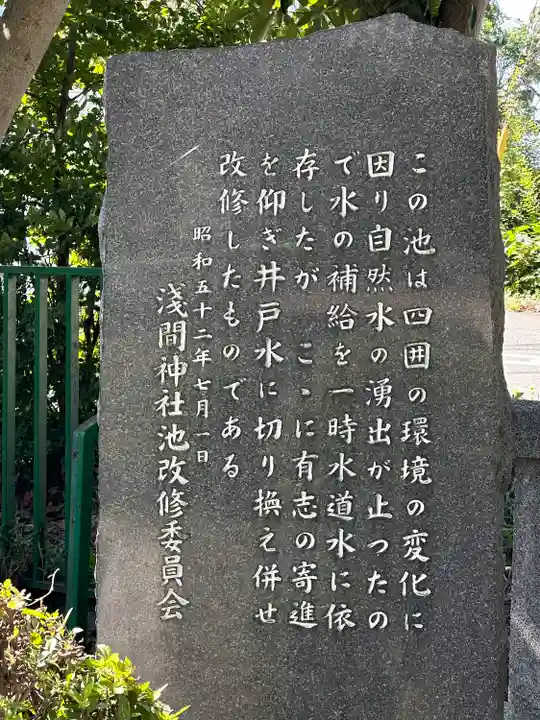 この池は四囲の環境の変化に
因り自然水の湧出が止ったの
で水の補給を一時水道水に依
存したが こゝに有志の寄進
を仰ぎ井戸水に切り換え併せ
改修したものである
昭和五十二年七月一日
浅間神社池改修委員会